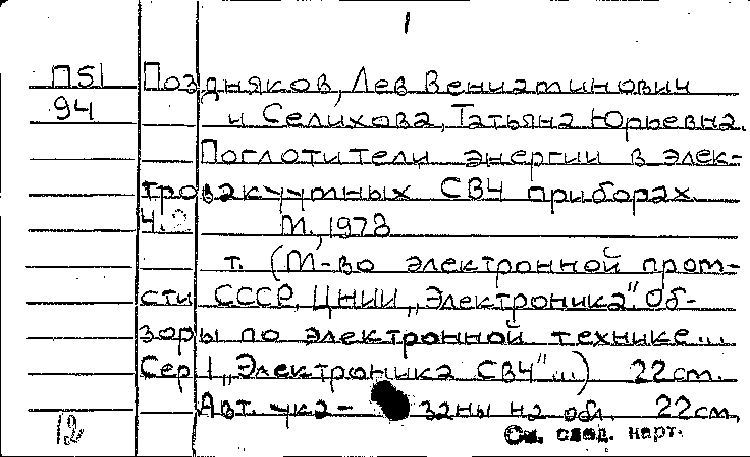 1
П51 Поздняков, Лев Вениаминович
94 и Селихова, Татьяна Юрьевна.
Поглотители энергии в элек-
тровакуумных СВЧ приборах.
Ч.2 М., 1978
т. (М-во электронной пром-
сти СССР, ЦНИИ „Электроника". Об-
зоры по электронной технике...
Сер 1 „Электроника СВЧ"...) 22 см.
Авт. ука- заны на обл. 22 см.
12 См. след. карт.